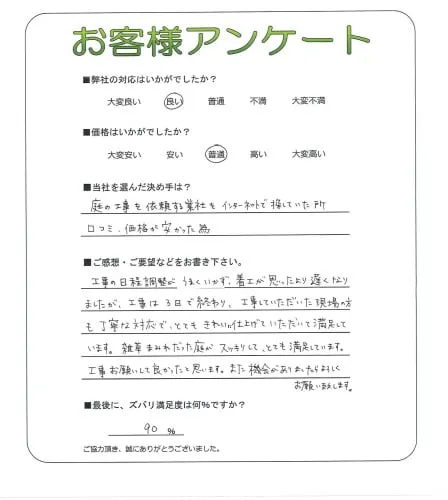 お客様アンケート
■弊社の対応はいかがでしたか?
大変良い 良い 普通 不満 大変不満
■価格はいかがでしたか?
大変安い 安い 普通 高い 大変高い
■当社を選んだ決め手は?
庭の工事を依頼する業社をインターネットで探していた所
口コミ、価格が安かった為
■ご感想・ご要望などをお書き下さい。
工事の日程調整がうまくいかず、着工が思ったより遅くなり
ましたが、工事は3日で終わり、工事していただいた現場の方
も丁寧な対応で、とてもきれいに仕上げていただいて満足して
います。雑草まみれだった庭がスッキリして、とても満足しています。
工事お願いして良かったと思います。また機会がありましたらよろしく
お願いします。
■最後に、ズバリ満足度は何%ですか?
90 %
ご協力頂き、誠にありがとうございました。